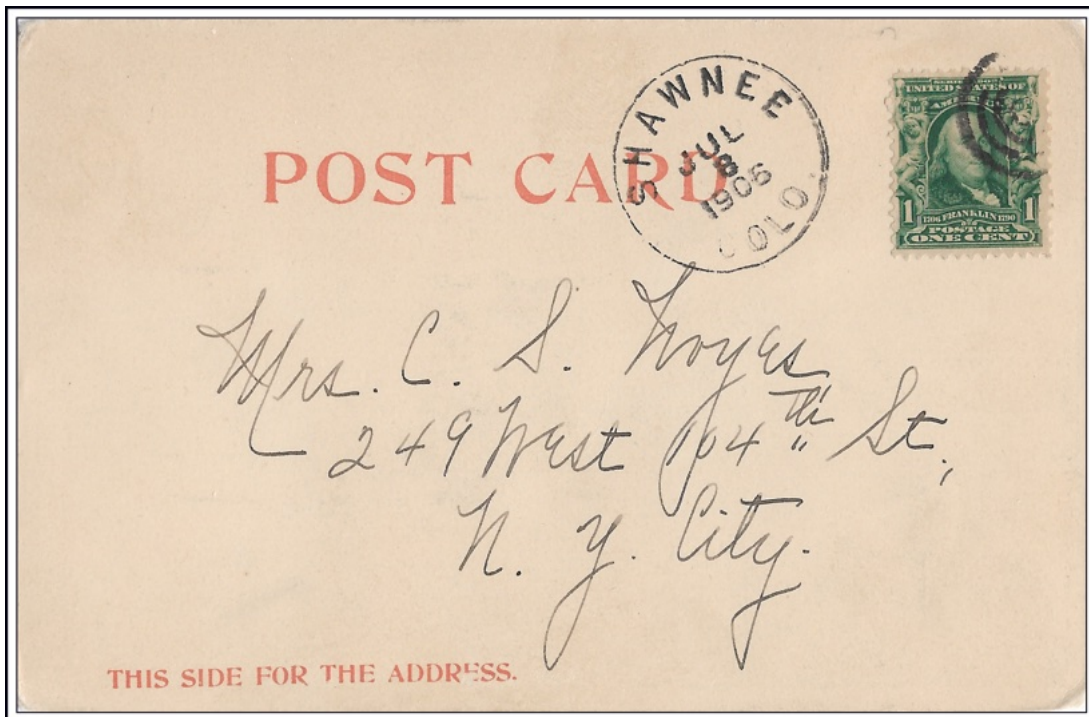 POST CARD
SHAWNEE
JUL
8
1906
COLO.
UNITED STATES OF
AMERICA
1 1706 FRANKLIN 1790 1
POSTAGE
ONE CENT
Mrs. C. S. Noyes
249 West 104th St.,
N. Y. City.
THIS SIDE FOR THE ADDRESS.